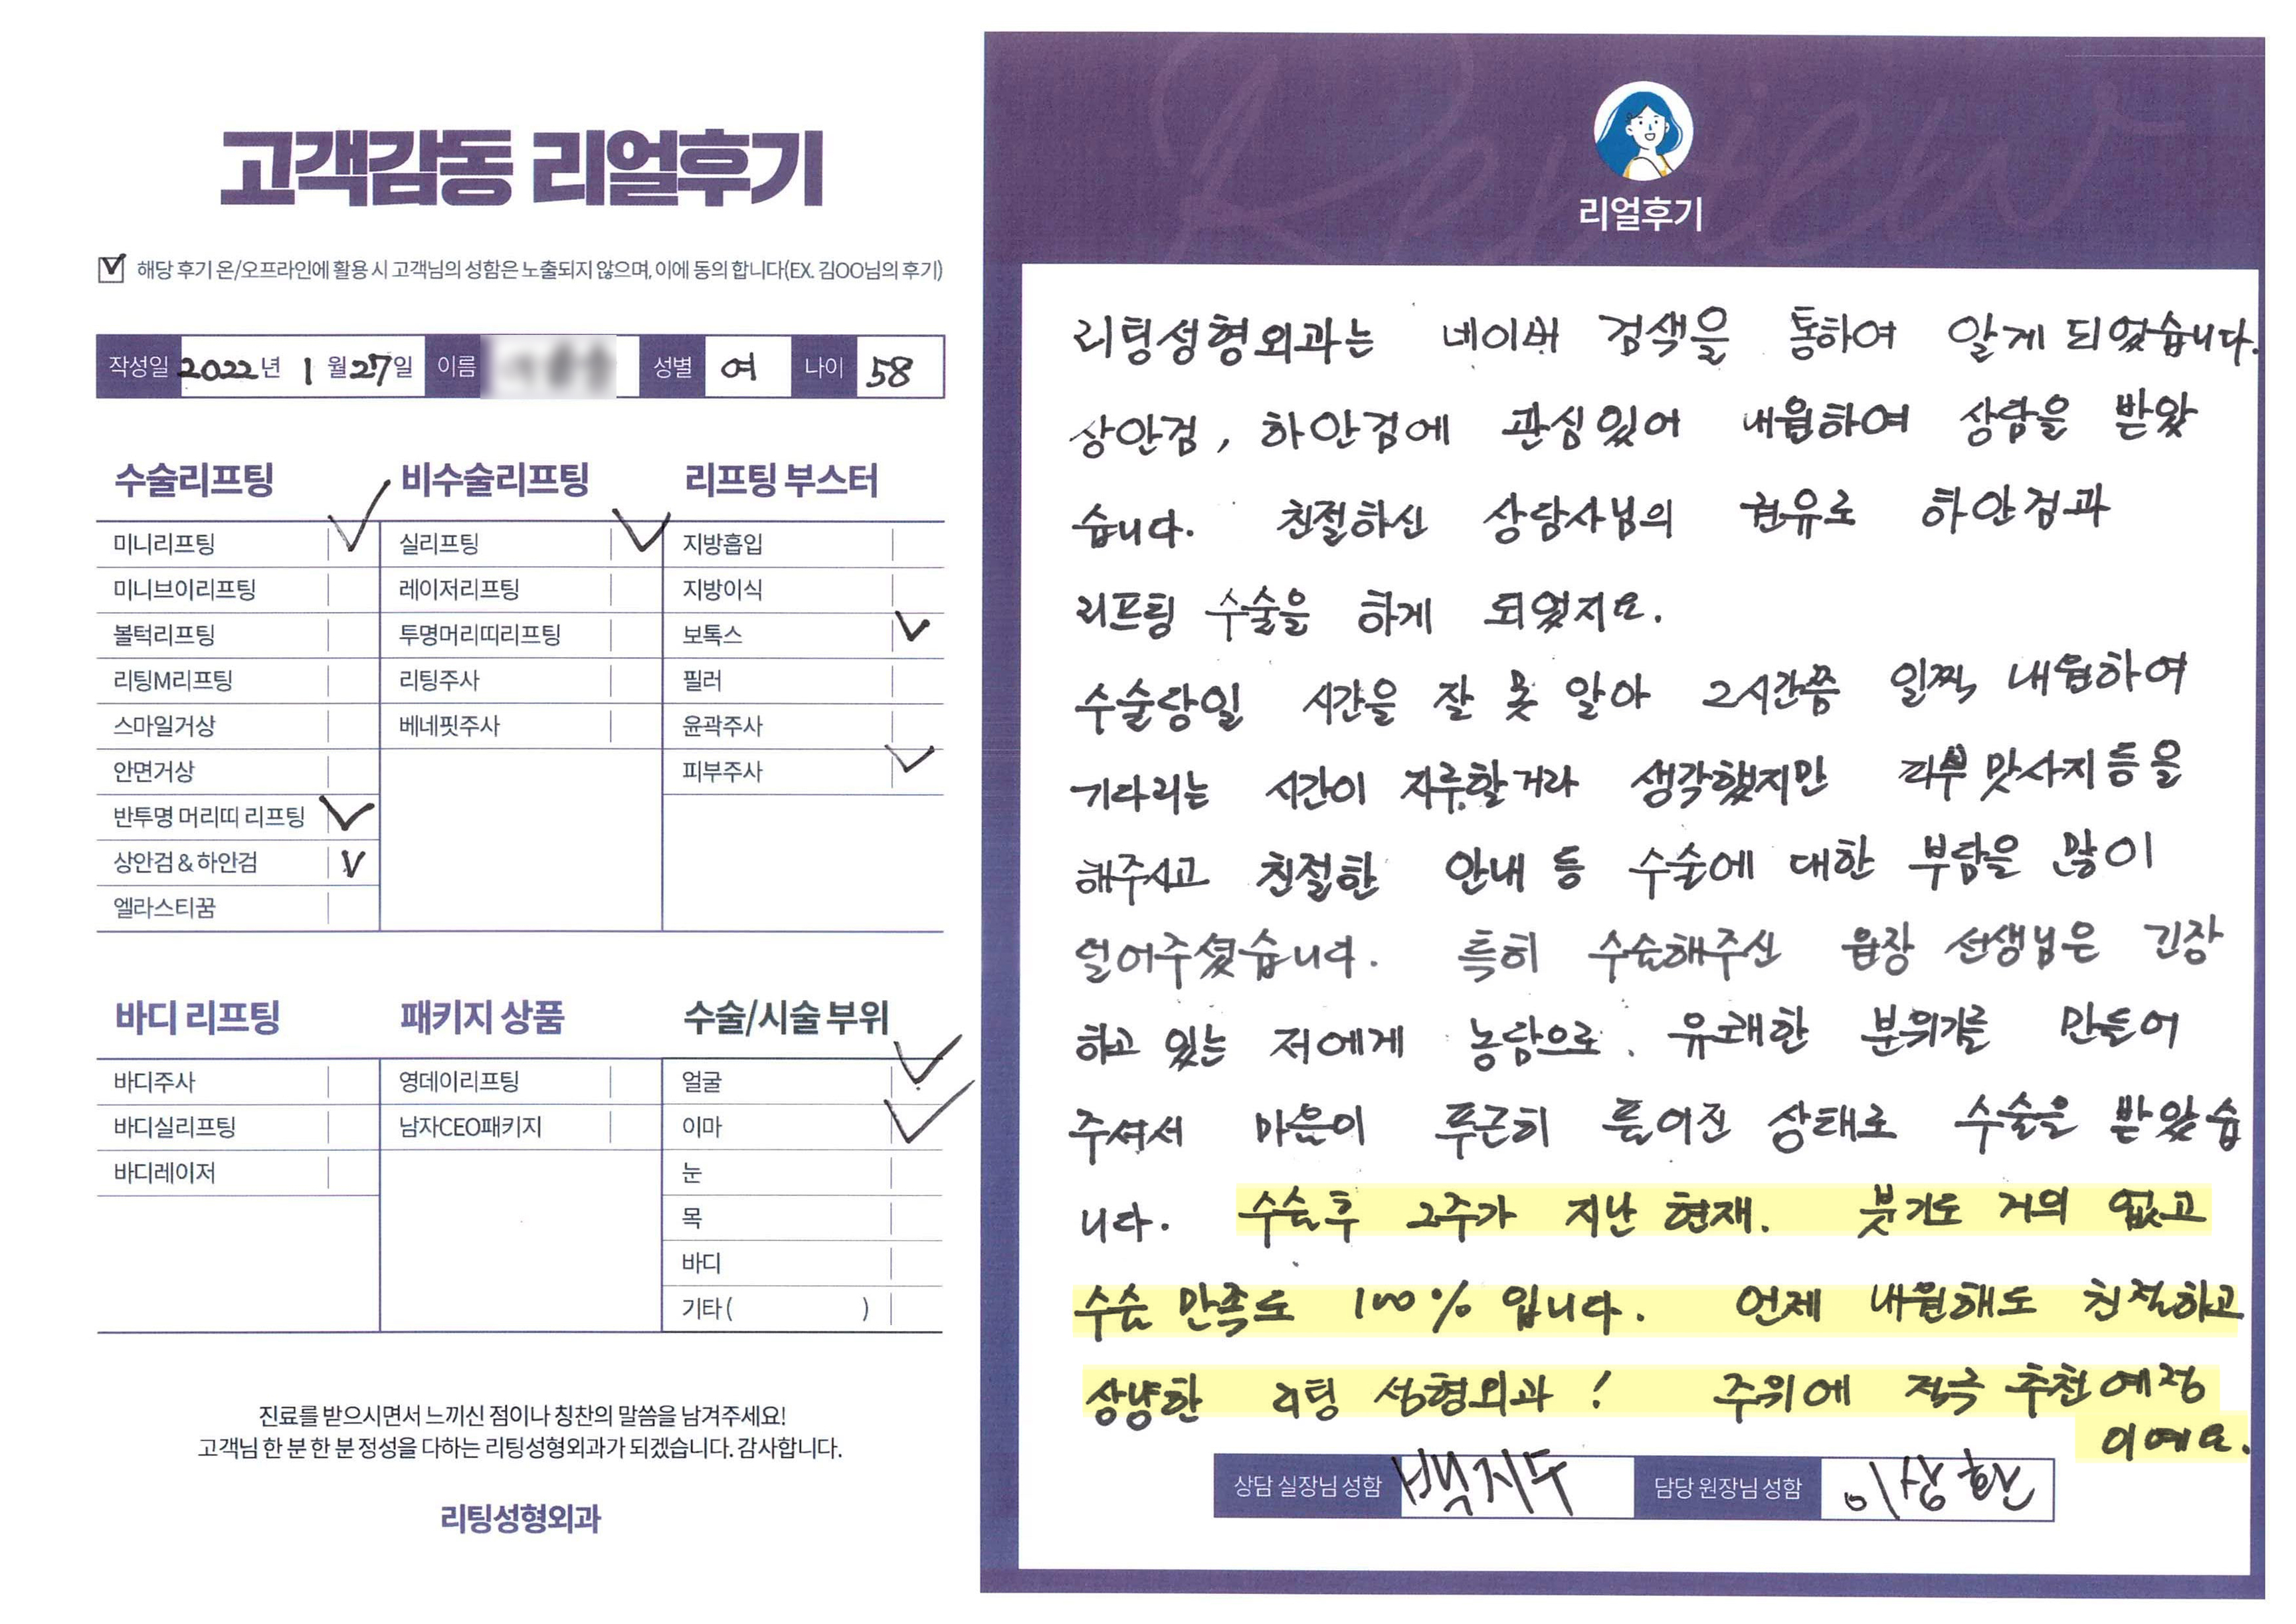 고객감동 리얼후기
해당 후기 온/오프라인에 활용 시 고객님의 성함은 노출되지 않으며, 이에 동의 합니다(EX. 김OO님의 후기)
작성일 2022년 1월 27일 이름 성별 여 나이 58
수술리프팅
미니리프팅
미니브이리프팅
볼턱리프팅
리팅M리프팅
스마일거상
안면거상
반투명 머리띠 리프팅
상안검 & 하안검
엘라스티꿈
비수술리프팅
실리프팅
레이저리프팅
투명머리띠리프팅
리팅주사
베네핏주사
리프팅 부스터
지방흡입
지방이식
보톡스
필러
윤곽주사
피부주사
바디 리프팅
바디주사
바디실리프팅
바디레이저
패키지 상품
영데이리프팅
남자CEO패키지
수술/시술 부위
얼굴
이마
눈
목
바디
기타 ( )
진료를 받으시면서 느끼신 점이나 칭찬의 말씀을 남겨주세요!
고객님 한 분 한 분 정성을 다하는 리팅성형외과가 되겠습니다. 감사합니다.
리팅성형외과
Review
리얼후기
리팅성형외과는 네이버 검색을 통하여 알게 되었습니다.
상안검, 하안검에 관심있어 내원하여 상담을 받았
습니다. 친절하신 상담사님의 권유로 하안검과
리프팅 수술을 하게 되었지요.
수술당일 시간을 잘 못 알아 2시간쯤 일찍 내원하여
기다리는 시간이 지루할거라 생각했지만 피부 맛사지 등을
해주시고 친절한 안내 등 수술에 대한 부담을 많이
덜어주셨습니다. 특히 수술해주신 원장 선생님은 긴장
하고 있는 저에게 농담으로. 유쾌한 분위기를 만들어
주셔서 마음이 푸근히 풀어진 상태로 수술을 받았습
니다. 수술후 2주가 지난 현재. 붓기도 거의 없고
수술 만족도 100% 입니다. 언제 내원해도 친절하고
상냥한 리팅 성형외과! 주위에 적극 추천예정
이예요.
상담 실장님 성함 담당 원장님 성함 이상환